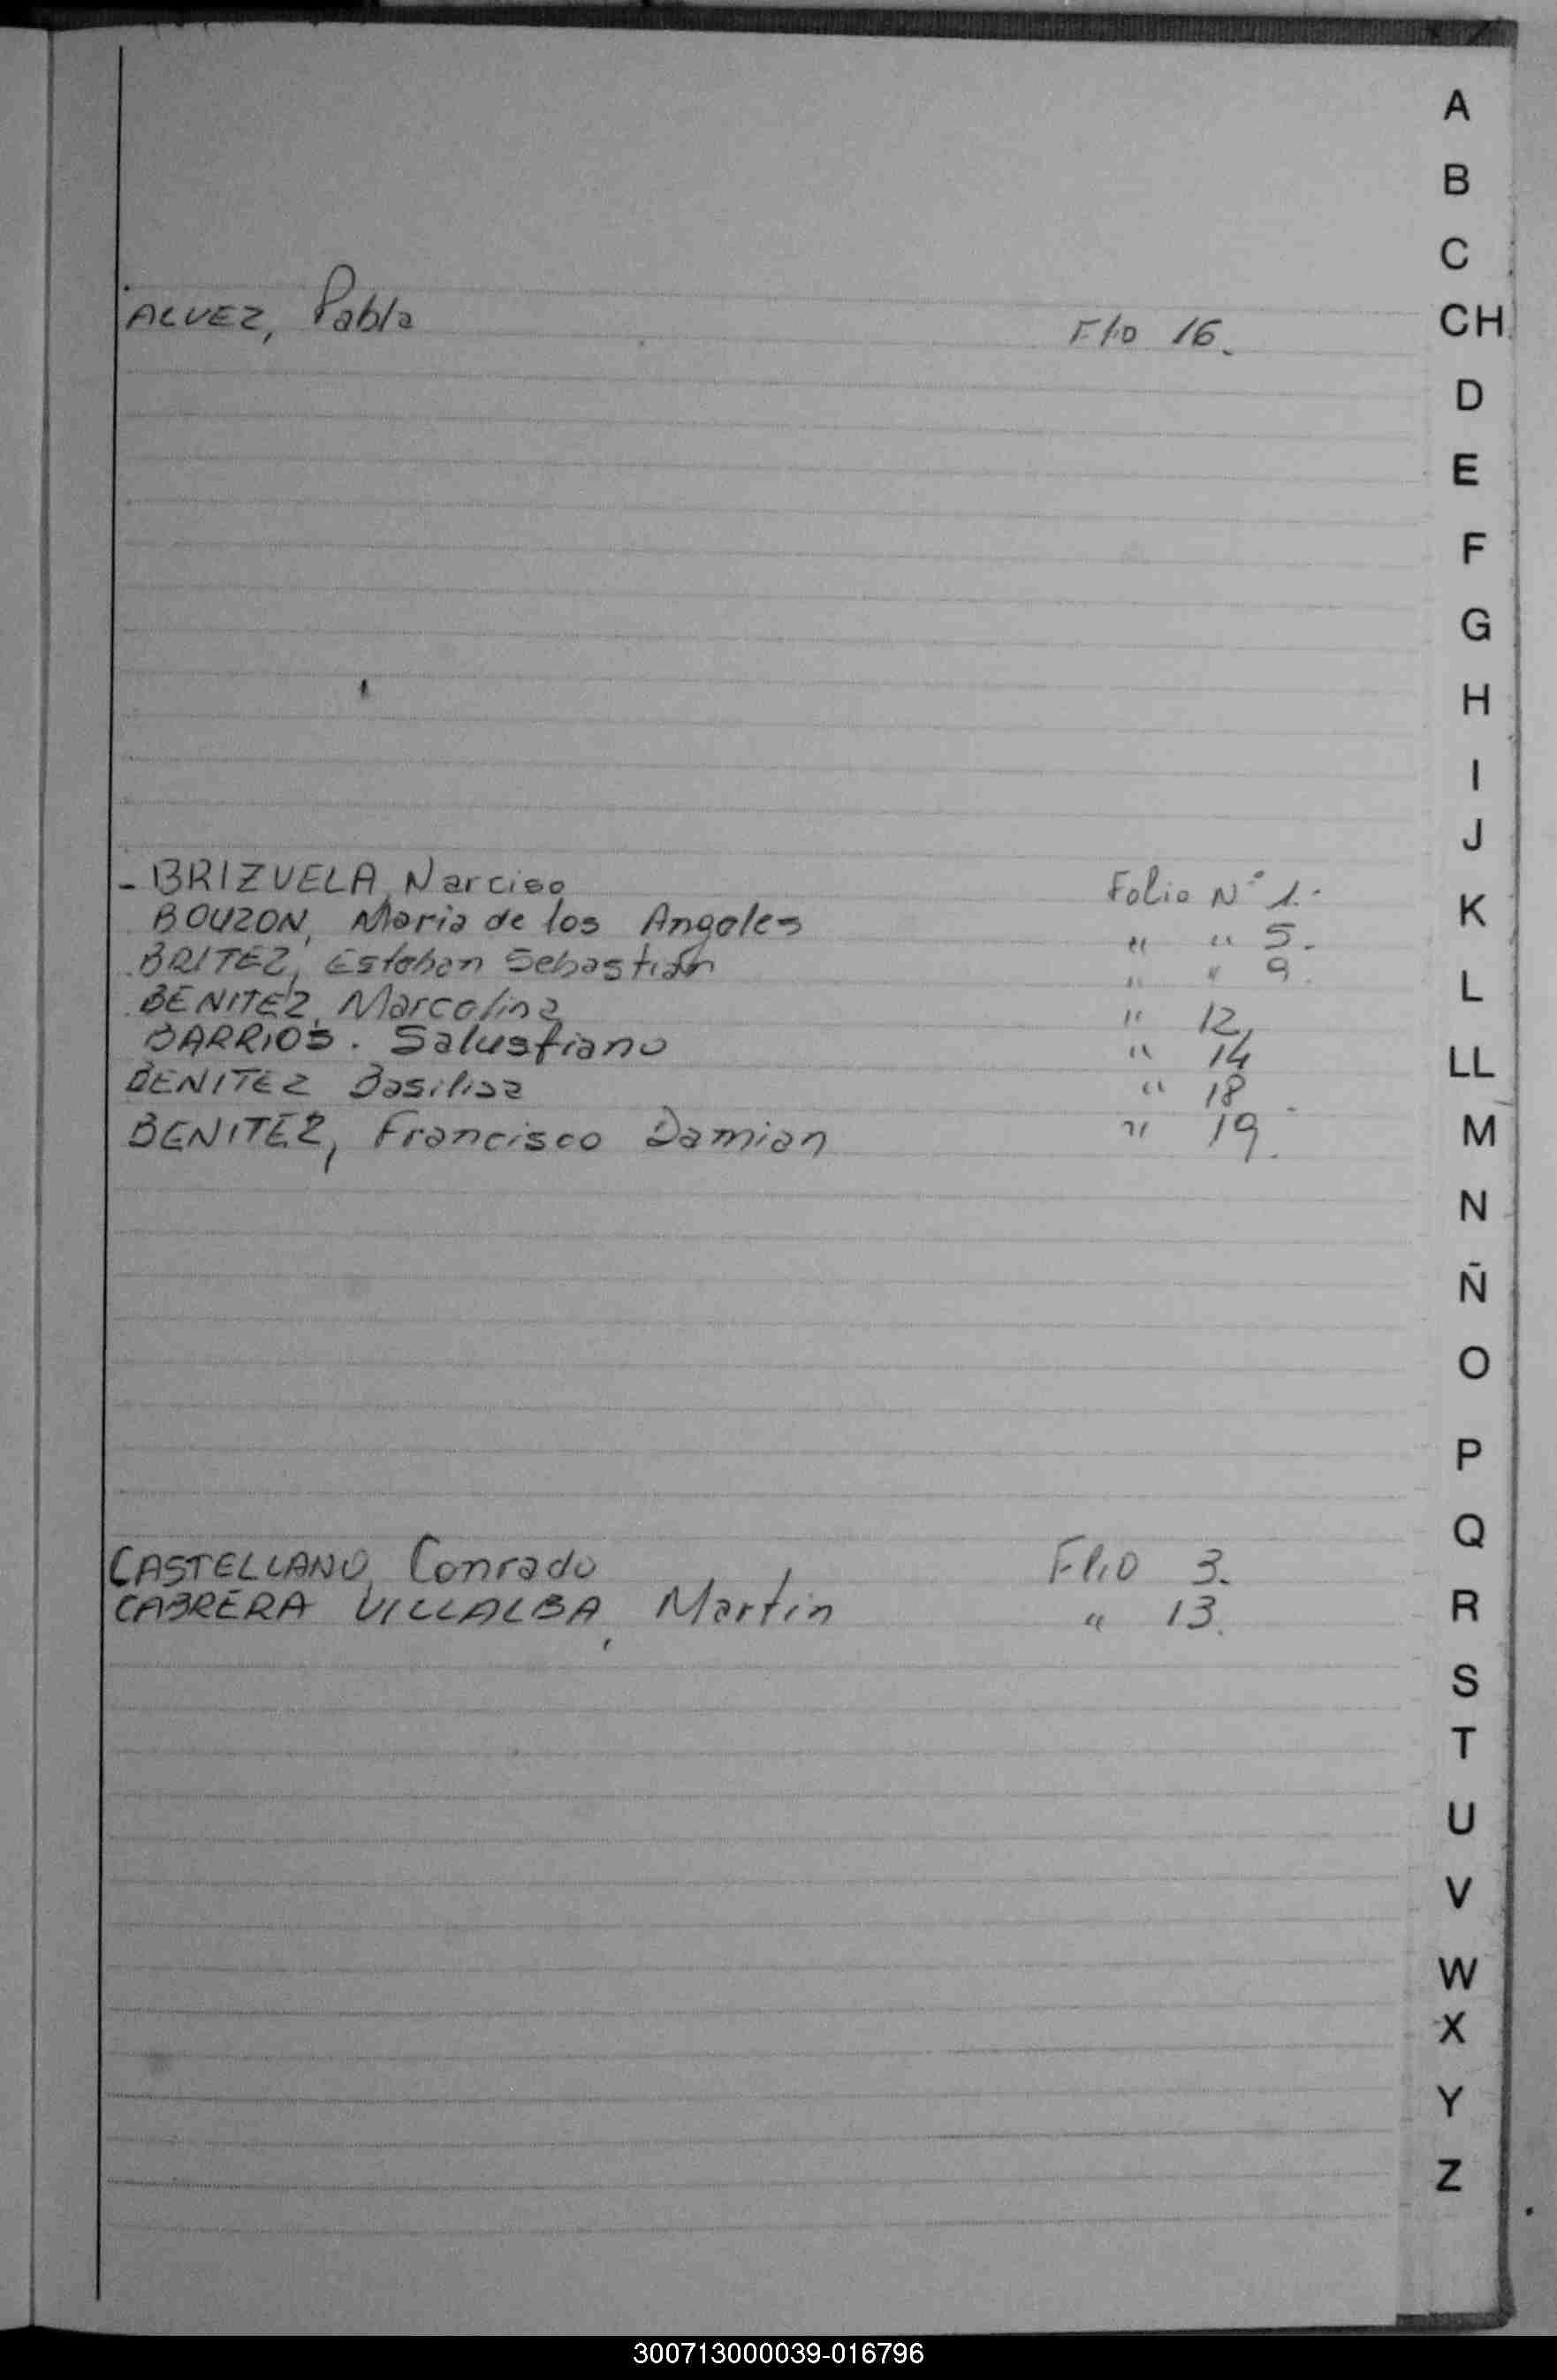 ALVEZ, Pabla Flio 16.
- BRIZUELA, Narciso Folio N° 1.-
BOUZON, Maria de los Angeles " " 5.
BRITEZ, Esteban Sebastián " " 9.
BENITEZ, Marcolina " 12,
BARRIOS. Salustiano " 14
BENITEZ Basilisa " 18
BENITEZ, Francisco Damian " 19.
CASTELLANO, Conrado Flio 3.
CABRERA VILLALBA, Martin " 13.
A
B
C
CH
D
E
F
G
H
I
J
K
L
LL
M
N
Ñ
O
P
Q
R
S
T
U
V
W
X
Y
Z
300713000039-016796